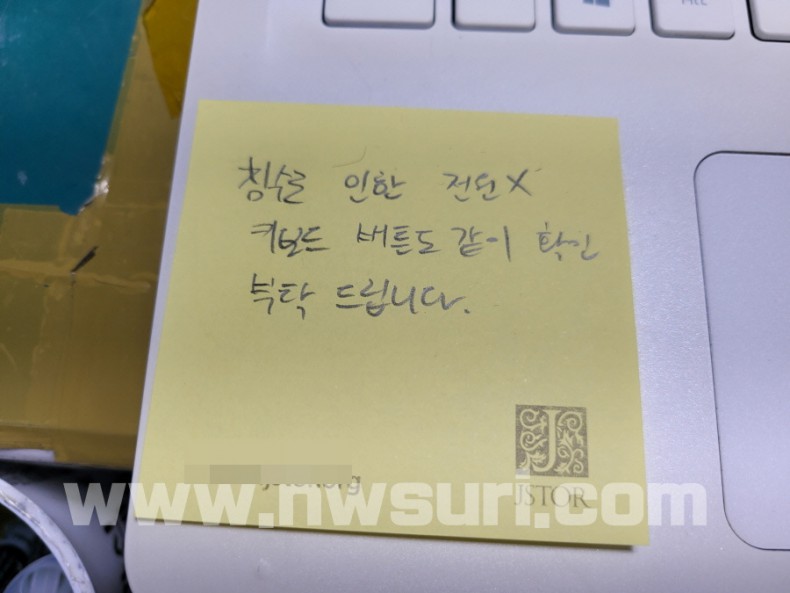 침수로 인한 전원X
키보드 버튼도 같이 확인
부탁 드립니다.
JSTOR
www.nwsuri.com